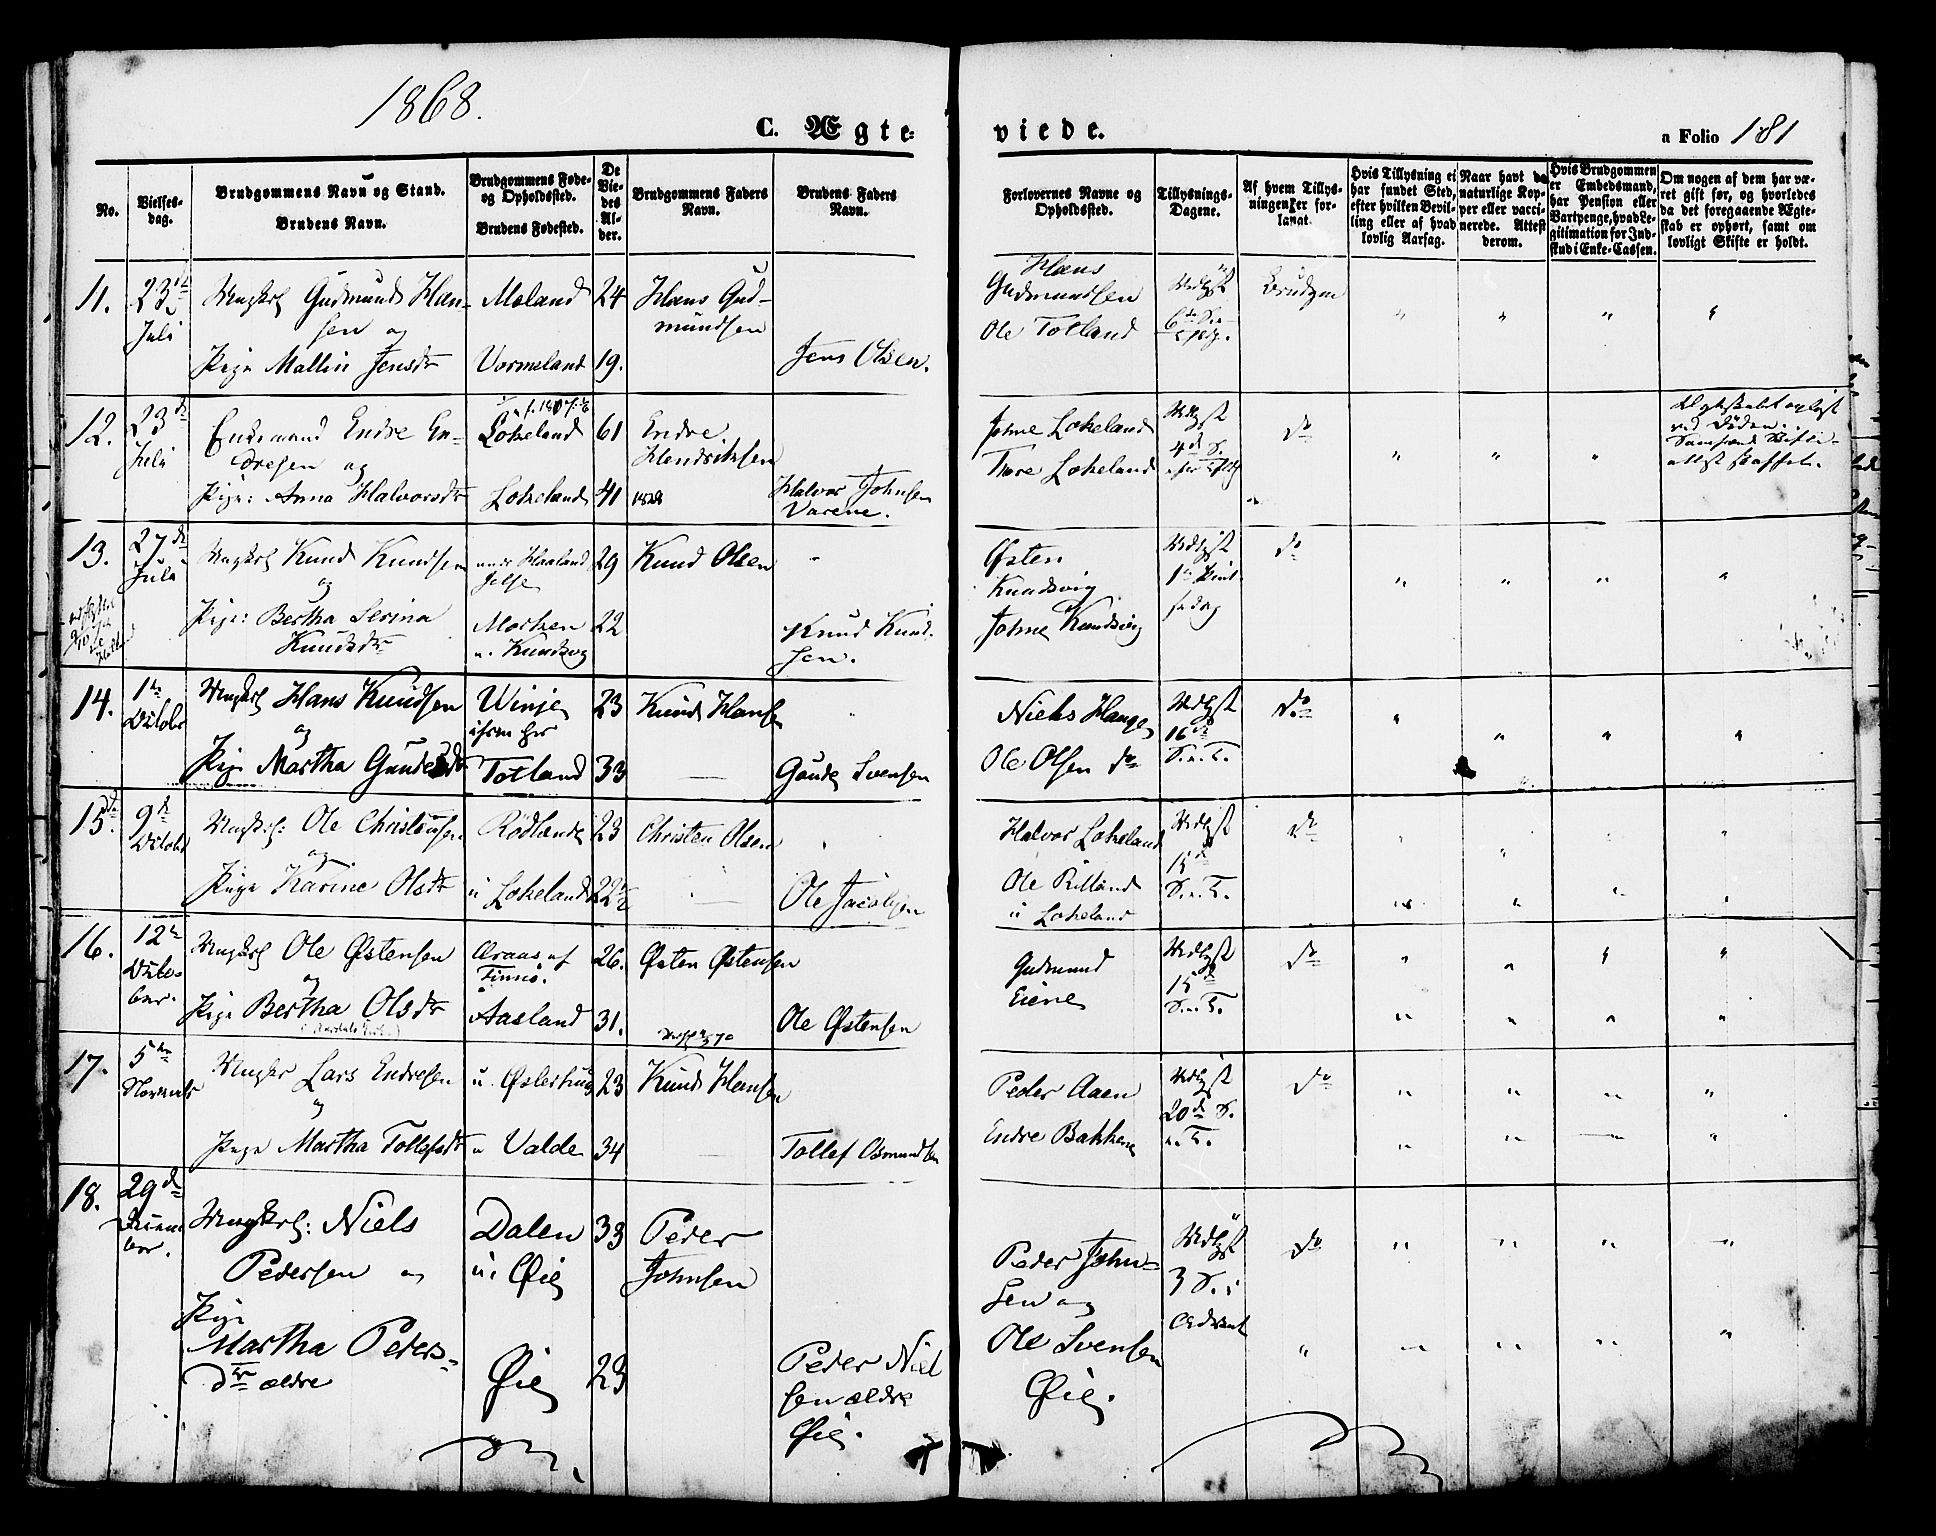 1868.
C. Ægte-
viede.
a Folio 181
No.
Vielses-
dag.
Brudgommens Navn og Stand.
Brudens Navn.
Brudgommens Føde-
og Opholdssted.
Brudens Fødested.
De
Vie-
des
Al-
der.
Brudgommens Faders
Navn.
Brudens Faders
Navn.
Forlovernes Navne og
Opholdssted.
Tillysnings-
Dagene.
Af hvem Tillys-
ningen er for-
langt.
Hvis Tillysning ei
har fundet Sted,
efter hvilken Bevil-
ling eller af hvad
lovlig Aarsag.
Naar havt de
naturlige Kop-
per eller vacci-
nerede. Attest
derom.
Hvis Brudgommen
er Embedsmand,
har Pension eller
Vartpenge, hvad Le-
gitimation for Ind-
skud i Enke-Cassen.
Om nogen af dem har væ-
ret gift før, og hvorledes
da det foregaaende Ægte-
skab er ophørt, samt om
lovligt Skifte er holdt.
11.
23
Juli
Ungkarl Gudmund Han-
sen og
Pige Mallin Jensdtr
Moland
Vormeland
24
19.
Hans Gud-
mundsen
Jens Olsen.
Hans
Gudmundsen
Ole Totland
Brudgm
12.
23de
Juli
Enkemand Endre En-
dresen og
Pige: Anna Halvorsdtr
Lokeland
Lokeland
61
41
Endre
Hendriksen
Halvor Johnsen
Varene.
Johne Lokeland
Tore Lokeland
4de S.
do
ved Døden.
13.
27de
Juli
Ungkarl Knud Knudsen
og
Pige: Bertha Serina
Knudsdtr
Haaland
Jelse
u. Knudsvig
29
22
Knud Olsen
Knud Knud-
sen.
Østen
Knudsvig
Johne Knudsvig
do
14.
1ste
Octobr
Ungkarl Hans Knudsen
og
Pige Martha Gaudesdtr
Winje
Totland
23
33
Knud Hansen
Gaude Svensen
Niels Hauge
Ole Olsen do
16de
S. e. T.
do
15.
9de
Octobr
Ungkarl: Ole Christensen
og
Pige Karine Olsdtr
Rødlande
u Lokeland
23
22½
Christen Olsen
Ole Jacobsen
Halvor Lokeland
Ole Rilland
u Lokeland
15de
S. e. T.
do
16.
12te
Octo-
ber.
Ungkarl Ole Østensen
og
Pige Bertha Olsdtr
Aasland
26.
31.
Østen Østensen
Ole Østensen
Gudmund
Eiene
15de
S. e. T.
do
17.
5te
Novembr
Ungkar Lars Endresen
og
Pige Martha Tollefsdtr
u. Østerhus
u Valde
23
34
Knud Hansen
Tollef Osmundsen
Peder Aaen
Endre Bakken
20de S.
e. T.
do
18.
29de
Decem
ber.
Ungkarl: Niels
Pedersen og
Pige
Martha Peders-
dtr ældre
Dalen
u. Øie
Øie
33
23
Peder
Johnsen
Peder Niel
sen ældre
Øie.
Peder John-
sen og
Ole Svensen
Øie.
3 S. i
Advent
do